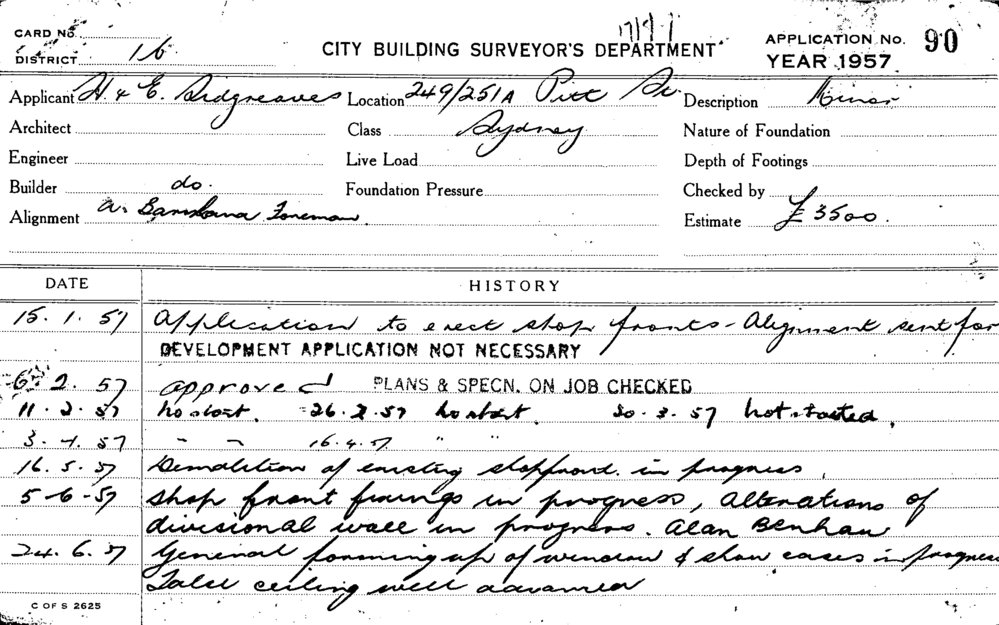 CARD No.
DISTRICT 16
CITY BUILDING SURVEYOR'S DEPARTMENT
APPLICATION No. 90
YEAR 1957
Applicant H. & E. Sidgreaves Location 249/251A Pitt St. Description Minor
Architect Class Sydney Nature of Foundation
Engineer Live Load Depth of Footings
Builder do. Foundation Pressure Checked by
Alignment A. Foreman. Estimate £3500.
DATE HISTORY
15.1.57 Application to erect shop fronts - Alignment sent for
DEVELOPMENT APPLICATION NOT NECESSARY
6.2.57 approved PLANS & SPECN. ON JOB CHECKED
11.2.57 no start. 26.2.57 no start 20.3.57 not started.
3.4.57 " " 16.4.57 " "
16.5.57 Demolition of existing shopfront in progress.
5-6-57 Shop front fixings in progress, Alterations of
divisional wall in progress. Alan Benham
24.6.57 General forming up of window & show cases in progress
False ceiling well advanced
C OF S 2625